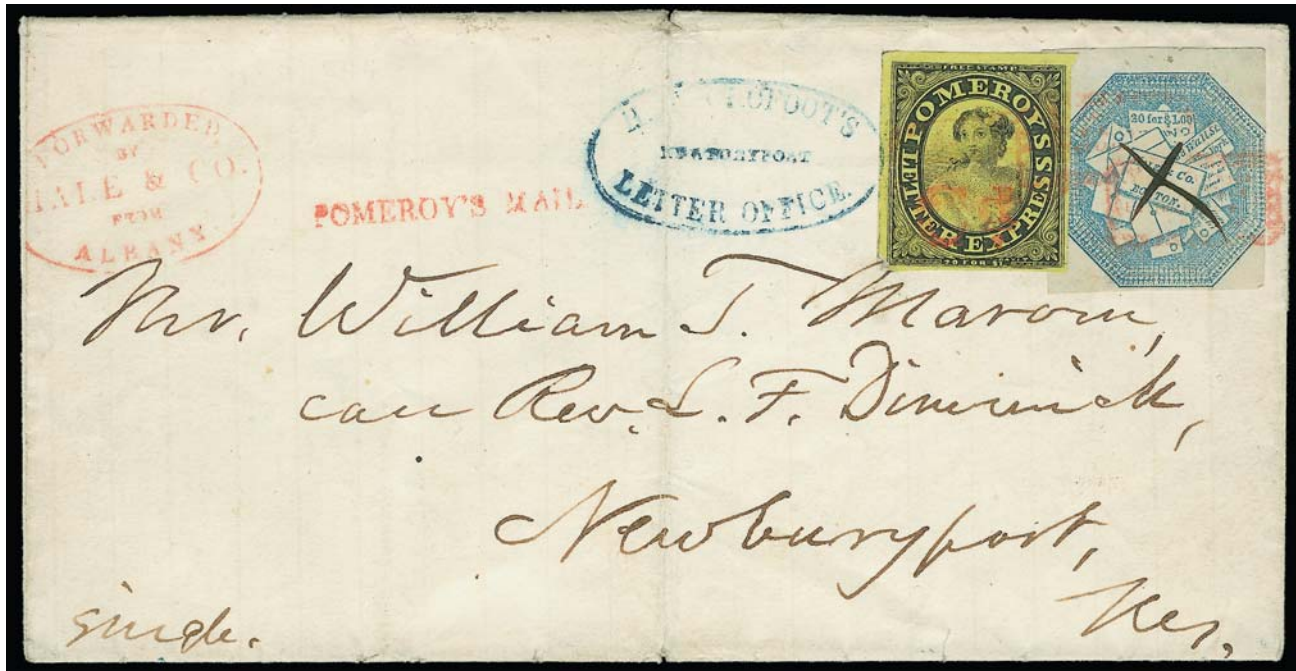 FORWARDED
BY
HALE & CO.
FROM
ALBANY.
POMEROY'S MAIL
LETTER OFFICE.
FREE STAMP
POMEROY'S
LETTER EXPRESS
20 FOR $1
20 for $1.00
Wall St.
& Co.
BOSTON.
Mr. William T.
Rev. L. F. Dimmick,
Newburyport,
single.